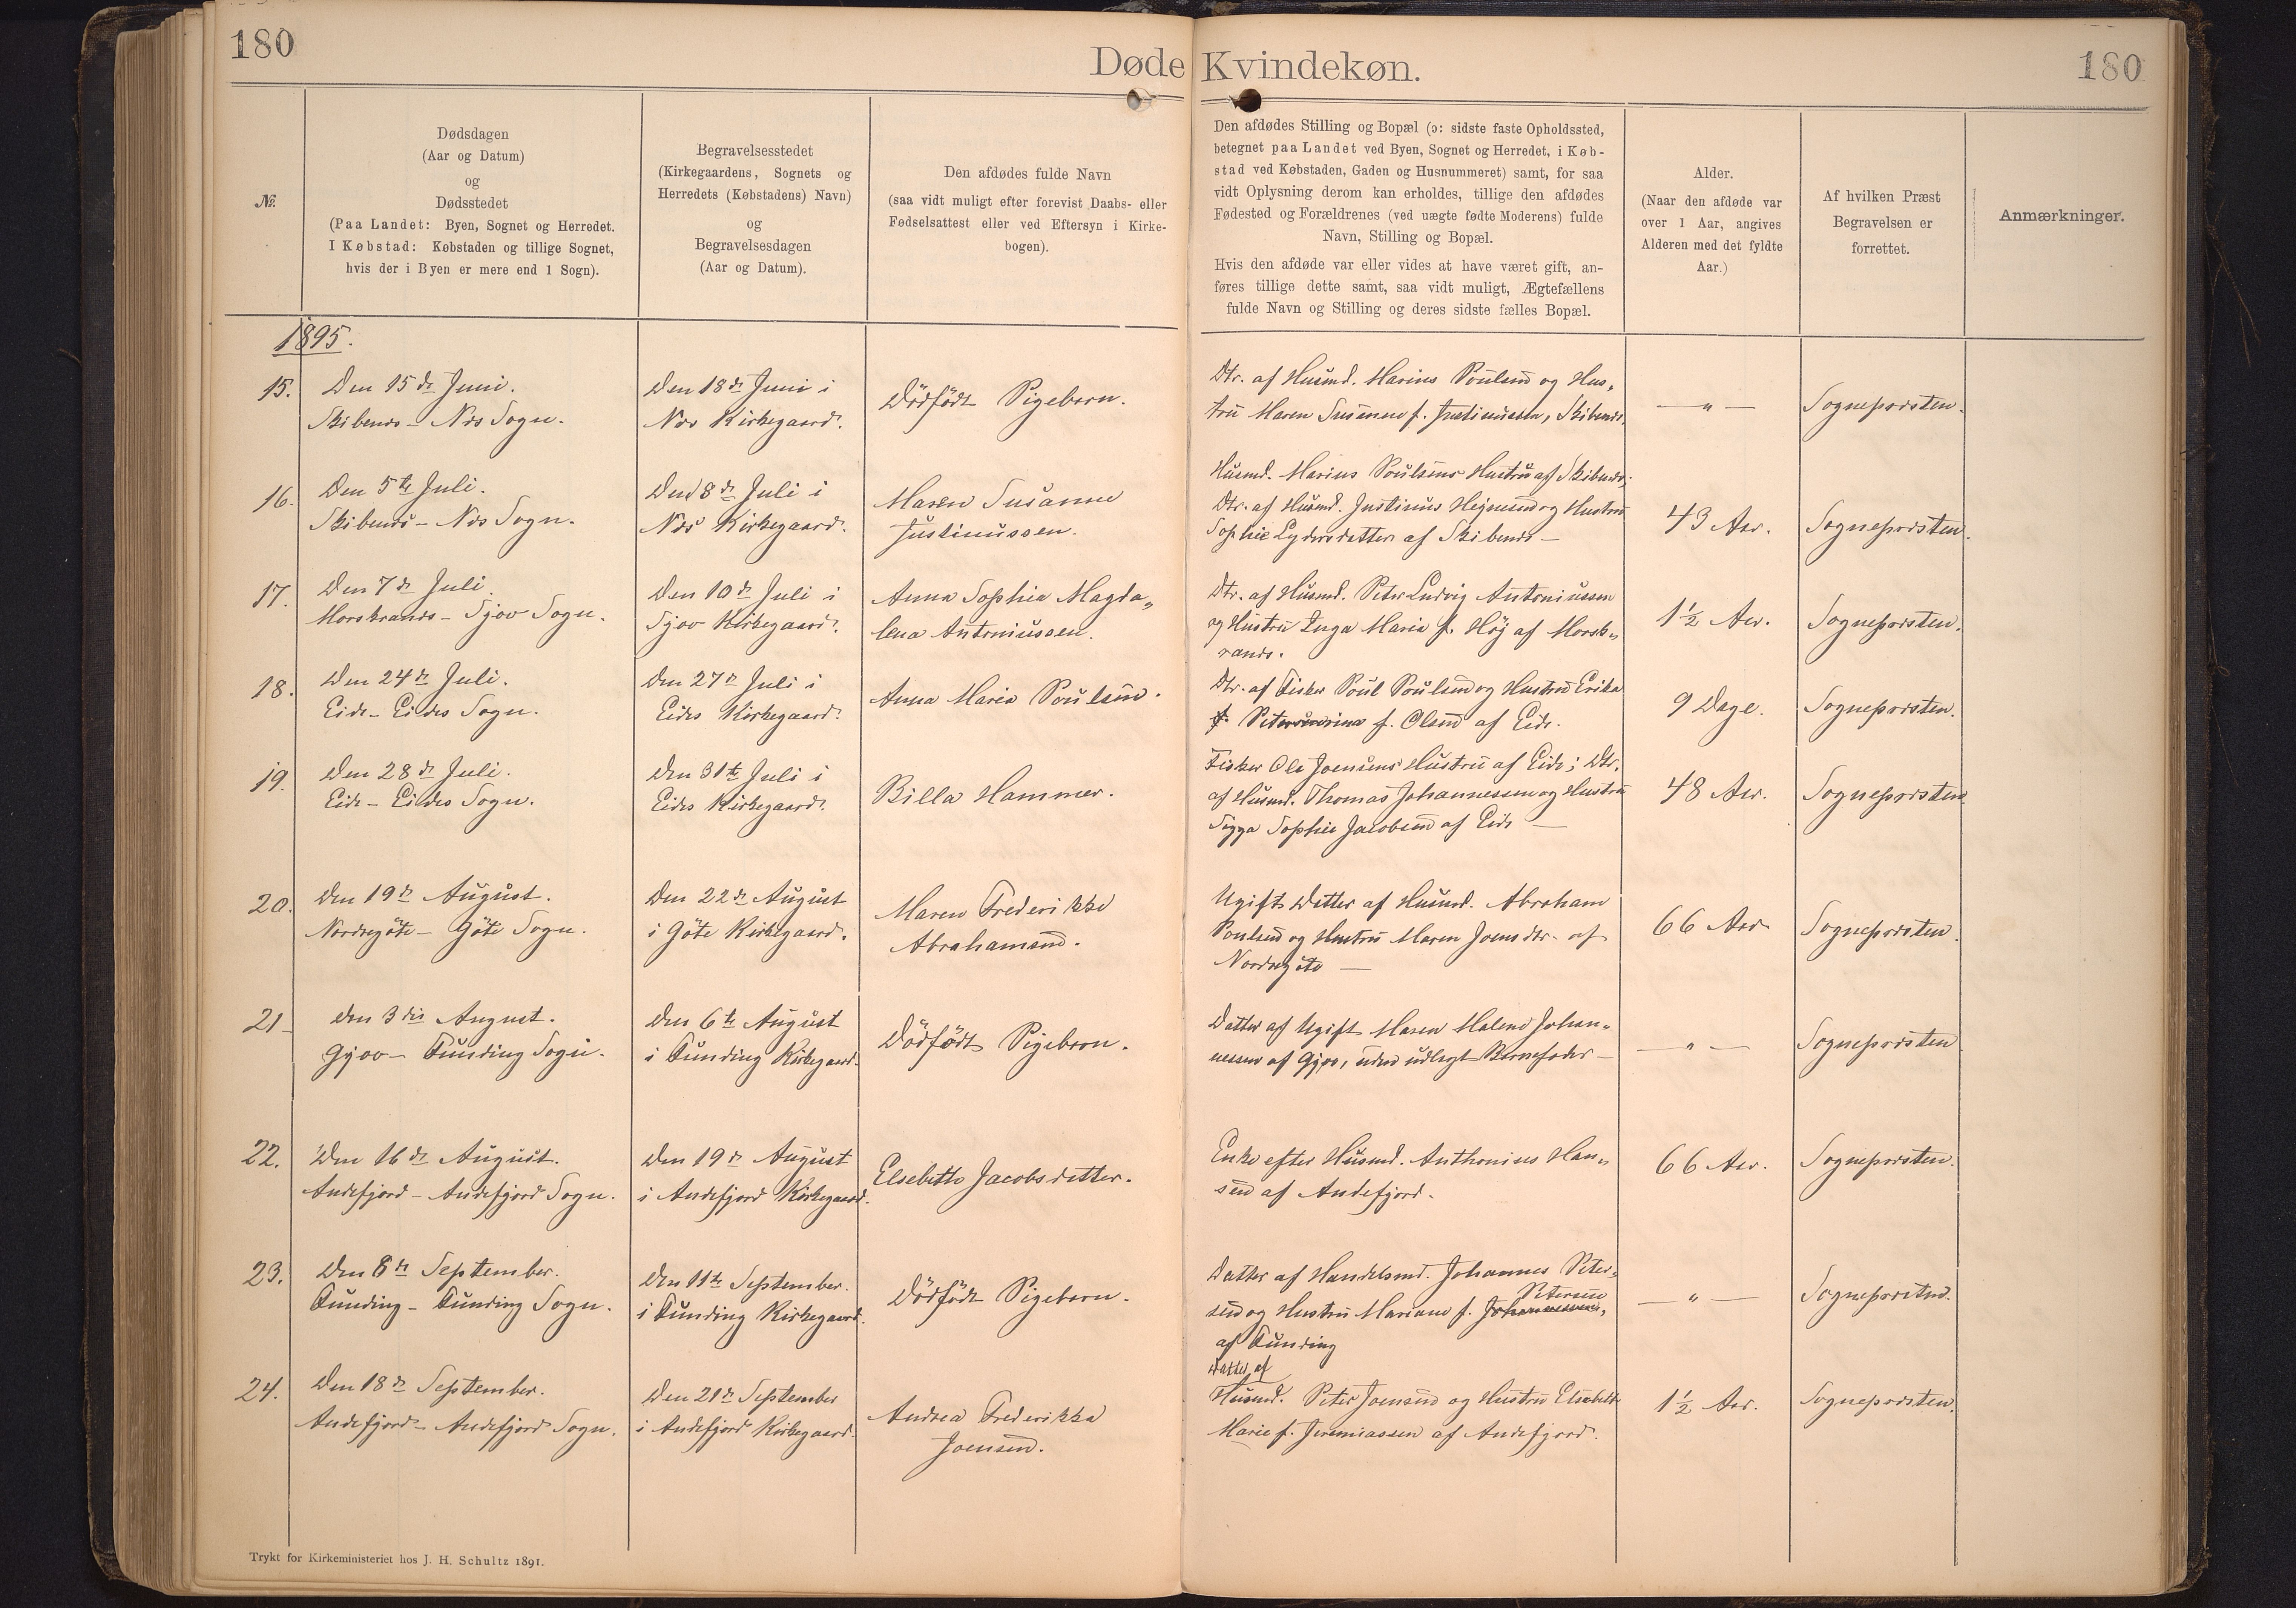 180
Døde Kvindekøn.
180
№.
Dødsdagen
(Aar og Datum)
og
Dødsstedet
(Paa Landet: Byen, Sognet og Herredet.
I Købstad: Købstaden og tillige Sognet,
hvis der i Byen er mere end 1 Sogn).
Begravelsesstedet
(Kirkegaardens, Sognets og
Herredets (Købstadens) Navn)
og
Begravelsesdagen
(Aar og Datum).
Den afdødes fulde Navn
(saa vidt muligt efter forevist Daabs- eller
Fødselsattest eller ved Eftersyn i Kirke-
bogen).
Den afdødes Stilling og Bopæl (ɔ: sidste faste Opholdssted,
betegnet paa Landet ved Byen, Sognet og Herredet, i Køb-
stad ved Købstaden, Gaden og Husnummeret) samt, for saa
vidt Oplysning derom kan erholdes, tillige den afdødes
Fødested og Forældrenes (ved uægte fødte Moderens) fulde
Navn, Stilling og Bopæl.
Hvis den afdøde var eller vides at have været gift, an-
føres tillige dette samt, saa vidt muligt, Ægtefællens
fulde Navn og Stilling og deres sidste fælles Bopæl.
Alder.
(Naar den afdøde var
over 1 Aar, angives
Alderen med det fyldte
Aar.)
Af hvilken Præst
Begravelsen er
forrettet.
Anmærkninger.
1895.
15.
Den 15de Juni.
Skibenæs - Næs Sogn.
Den 18de Juni i
Næs Kirkegaard.
Dödfödt Pigebarn.
Dtr. af Husmd. Marius Poulsen og Hus-
tru Maren Susanne f. Justinussen, Skibenæs.
— " —
Sognepræsten.
16.
Den 5te Juli.
Skibenæs - Næs Sogn.
Den 8de Juli i
Næs Kirkegaard.
Maren Susanne
Justinussen.
Husmd. Marius Poulsens Hustru af Skibenæs;
Dtr. af Husmd. Justinus Hejnesen og Hustru
Sophie Lydersdatter af Skibenæs —
43 Aar.
Sognepræsten.
17.
Den 7de Juli.
Morskranæs - Sjov Sogn.
Den 10de Juli i
Sjov Kirkegaard.
Anna Sophia Magda-
lena Antoniussen.
Dtr. af Husmd. Peter Ludvig Antoniussen
og Hustru Inga Maria f. Höj af Morsk-
ranæs.
1½ Aar.
Sognepræsten.
18.
Den 24de Juli.
Eide - Eides Sogn.
Den 27de Juli i
Eides Kirkegaard.
Anna Maria Poulsen.
Dtr. af Fisker Poul Poulsen og Hustru Erika
f. Olsen af Eide.
9 Dage.
Sognepræsten.
19.
Den 28de Juli.
Eide - Eides Sogn.
Den 31te Juli i
Eides Kirkegaard.
Billa Hammer.
Fisker Ole Joensens Hustru af Eide; Dtr.
af Husmd. Thomas Johannessen og Hustru
Sigga Sophie Jacobsen af Eide —
48 Aar.
Sognepræsten
20.
Den 19de August.
Nordregöte - Göte Sogn.
Den 22de August
i Göte Kirkegaard.
Maren Frederikke
Abrahamsen.
Ugift Datter af Husmd. Abraham
Poulsen og Hustru Maren Joensdtr. af
Nordregöte —
66 Aar
Sognepræsten.
21
Den 3die August.
Gjov - Funding Sogn.
Den 6te August
i Funding Kirkegaard.
Dödfödt Pigebarn.
Datter af Ugift Maren Malene Johan-
nessen af Gjov, uden udlagt Barnefader —
— " —
Sognepræsten
22.
Den 16de August.
Andefjord - Andefjord Sogn.
Den 19de August
i Andefjord Kirkegaard.
Elsebeth Jacobsdatter.
Enke efter Husmd. Anthonius Han-
sen af Andefjord.
66 Aar.
Sognepræsten.
23.
Den 8de September.
Funding - Funding Sogn.
Den 11te September.
i Funding Kirkegaard.
Dödfödt Pigebarn.
Datter af Handelsmd. Johannes Peter-
Petersen
sen og Hustru Mariane f. Johannessen,
af Funding
— " —
Sognepræsten.
24.
Den 18de September.
Andefjord - Andefjord Sogn.
Den 21de September
i Andefjord Kirkegaard.
Andrea Frederikka
Joensen.
Datter af
Husmd. Peter Joensen og Hustru Elsebeth
Marie f. Jeremiassen af Andefjord.
1½ Aar.
Sognepræsten.
Trykt for Kirkeministeriet hos J. H. Schultz 1891.